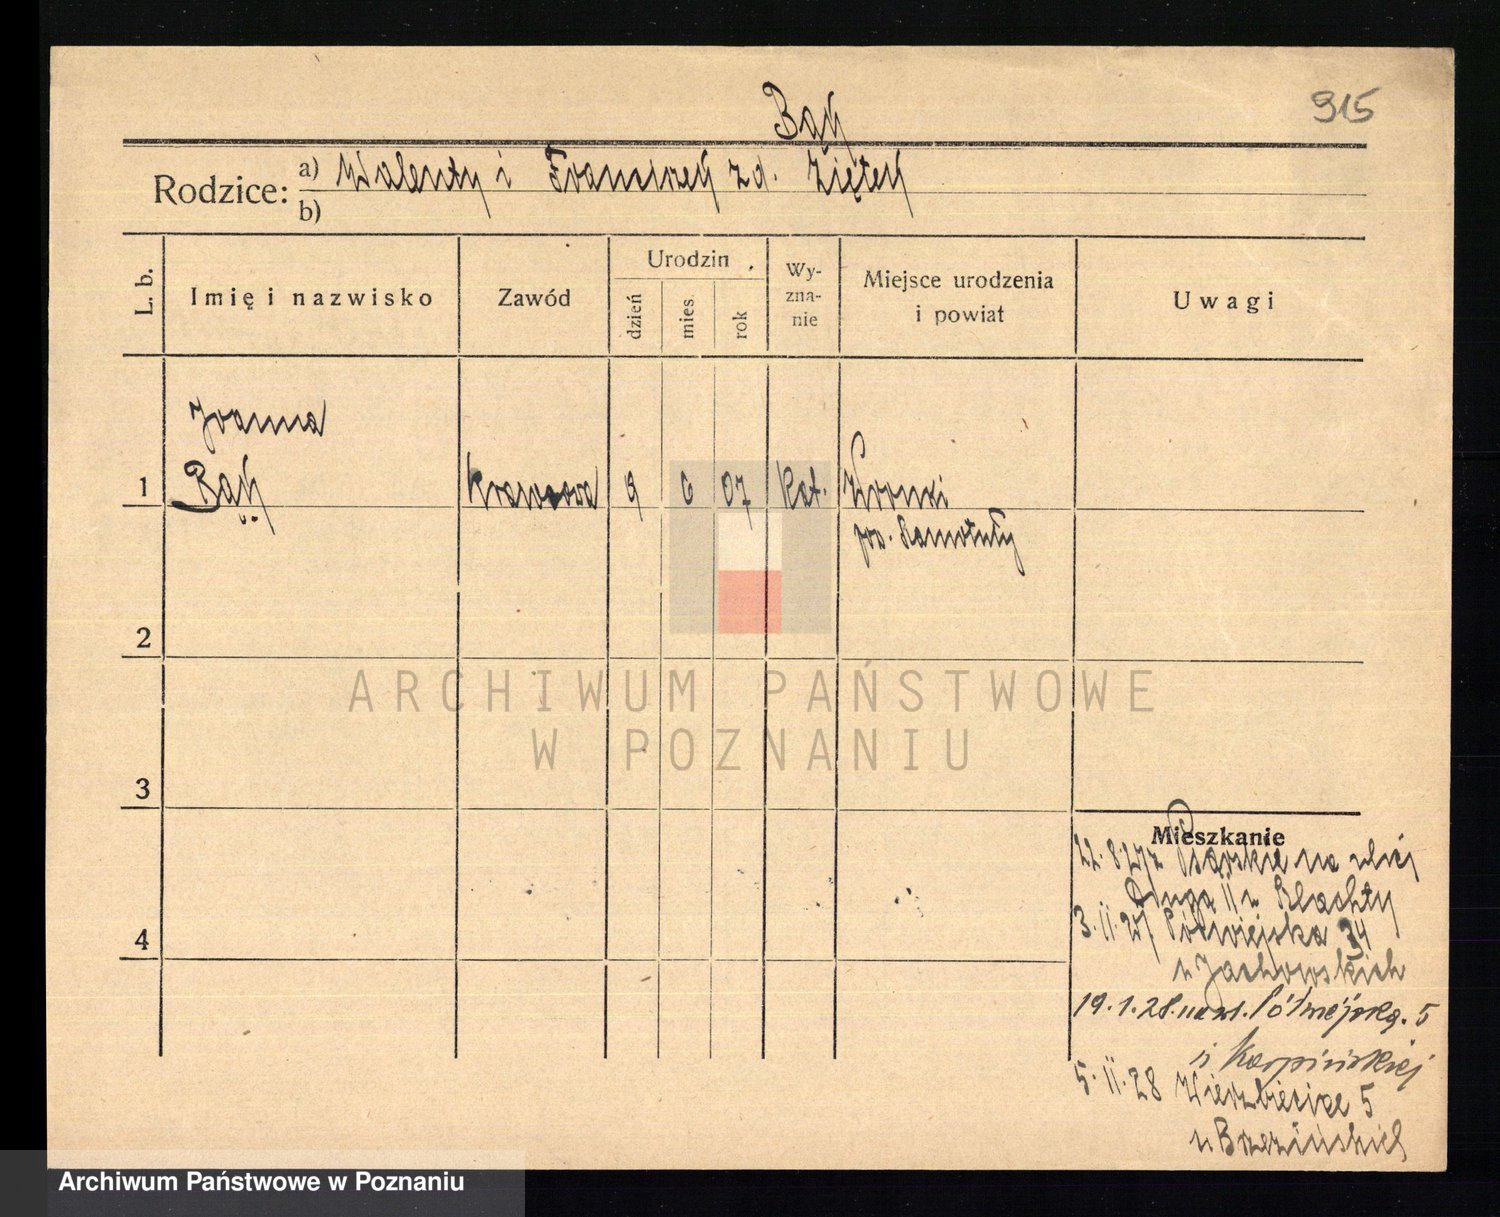 915
Bąk
Rodzice: a) Walenty i Franciszka zd. Ziętek
b)
L. b.
Imię i nazwisko
Zawód
Urodzin
dzień
mies
rok
Wy-
zna-
nie
Miejsce urodzenia
i powiat
Uwagi
Joanna
1 Bąk krawcowa 9 6 07 kat. Wronki
pow. Szamotuły
2
3
4
ARCHIWUM PAŃSTWOWE
W POZNANIU
Mieszkanie
22.8.27 z na ulicę
Długa 11 u
3.11.27 Półwiejska 34
u Jachowskich
19.1.28. na ul. Półwiejską. 5
u Karpińskiej
5.11.28 Wierzbięcice 5
u Brzezińskich
Archiwum Państwowe w Poznaniu